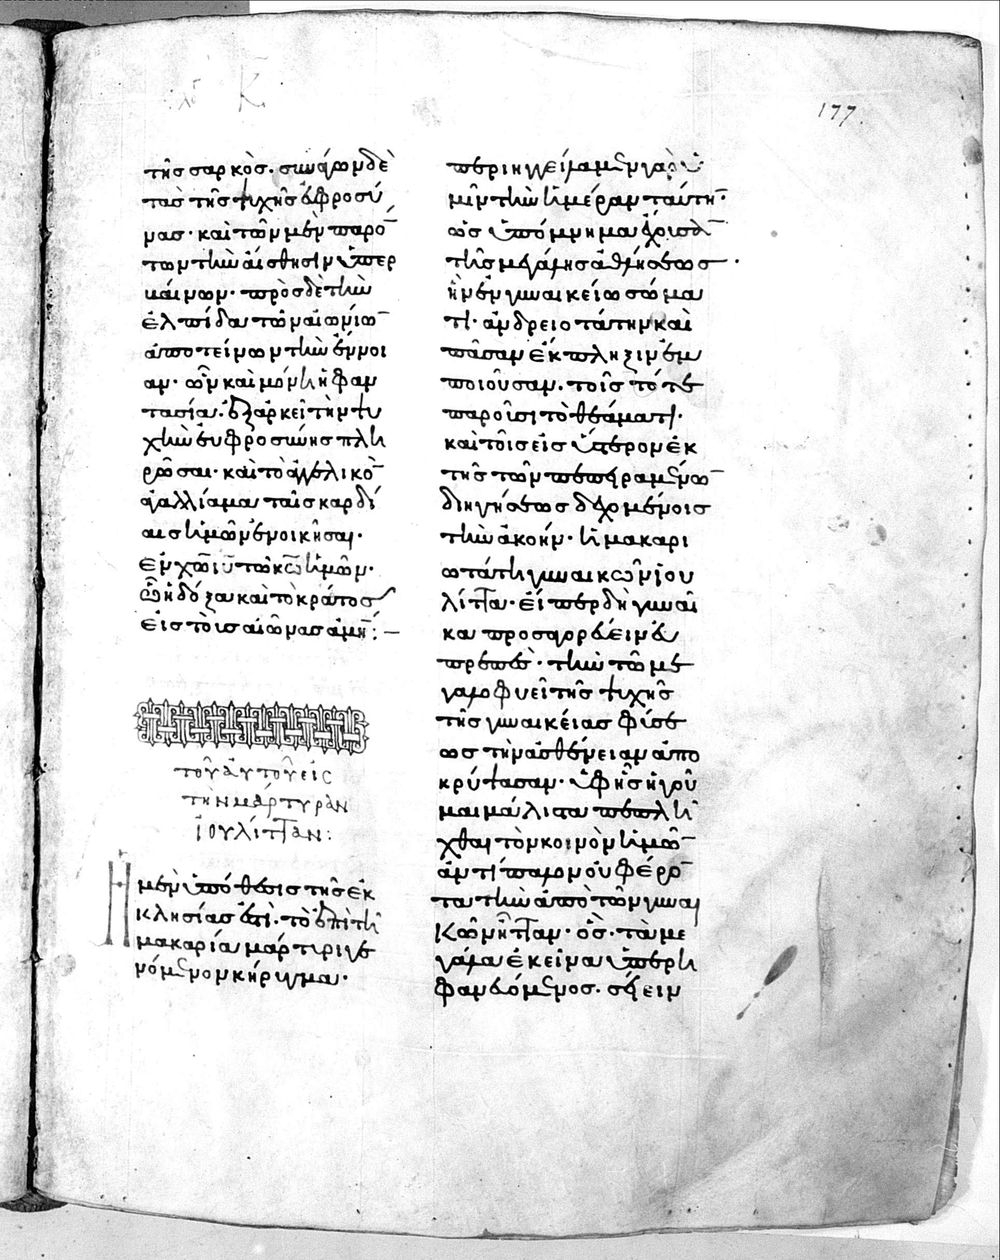 177.
τῆς σαρκὸς. συνάγων δὲ
τὰς τῆς ψυχῆς εὐφροσύ
νας· καὶ τῶν μὲν παρό
των τὴν αἴσθησιν ὑπερ
βαίνων· πρὸς δὲ τὴν
ἐλπίδα τῶν αἰωνίω
ἀποτείνων τὴν ἔννοι
αν· ὧν καὶ μόνη ἡ φαν
τασία. ἐξαρκεῖ τὴν ψυ
χὴν εὐφροσύνης πλη
ρῶσαι· καὶ τὸ ἀγγελικὸ
ἀγαλλίαμα ταῖς καρδί
αις ἡμῶν ἐνοικῆσαι.
ἐν χῶ ιῦ τῶ κῶ ἡμῶν·
ὧ ἡ δόξα καὶ τὸ κράτος
εἰς τοὺς αἰῶνας ἀμήν:—
τοῦ αὐτοῦ εἰς
τὴν μάρτυραν
ἰουλίτταν:
Ἡ μὲν ὑπόθεσις τῆς ἐκ
κλησίας ἐστὶ. τὸ ἐπὶ τῆ
μακαρία μάρτυρι γε
νόμενον κήρυγμα·
περιηγγείλαμεν γὰρ ὑ
μῖν τὴν ἡμέραν ταύτην·
ὡς ὑπόμνημα ἔχουσαν
τῆς μεγάλης ἀθλήσεως·
ἣν ἐν γυναικείω σώμα
τι· ἀνδρειοτάτην καὶ
πᾶσαν ἔκπληξιν ἐμ
ποιοῦσαν. τοῖς τότε
παροῦσι τὸ θεάματι·
καὶ τοῖς εἰς ὕστερον ἐκ
τῆς τῶν πεπραμένω
διηγήσεως δεχομένοις
τὴν ἀκοήν· ἡ μακαρι
ωτάτη γυναικῶν ἰου
λίττα· εἴπερ δὴ γυναῖ
κα προσαγορεύειν
πρέπει· τὴν τῶ με
γαλοφυεῖ τῆς ψυχῆς
τῆς γυναικείας φύσε
ως τὴν ἀσθένειαν ἀπο
κρύψασαν· ὑφ ἧς ἡγοῦ
μαι μάλιστα πεπλῆ
χθαι τὸν κοινὸν ἡμῶ
ἀντίπαλον οὐ φέρο
τα τὴν ἀπὸ τῶν γυναι
κῶν ἧτταν· ὃς. τὰ με
γάλα ἐκεῖνα ὑπερη
φανευόμενος. σείειν